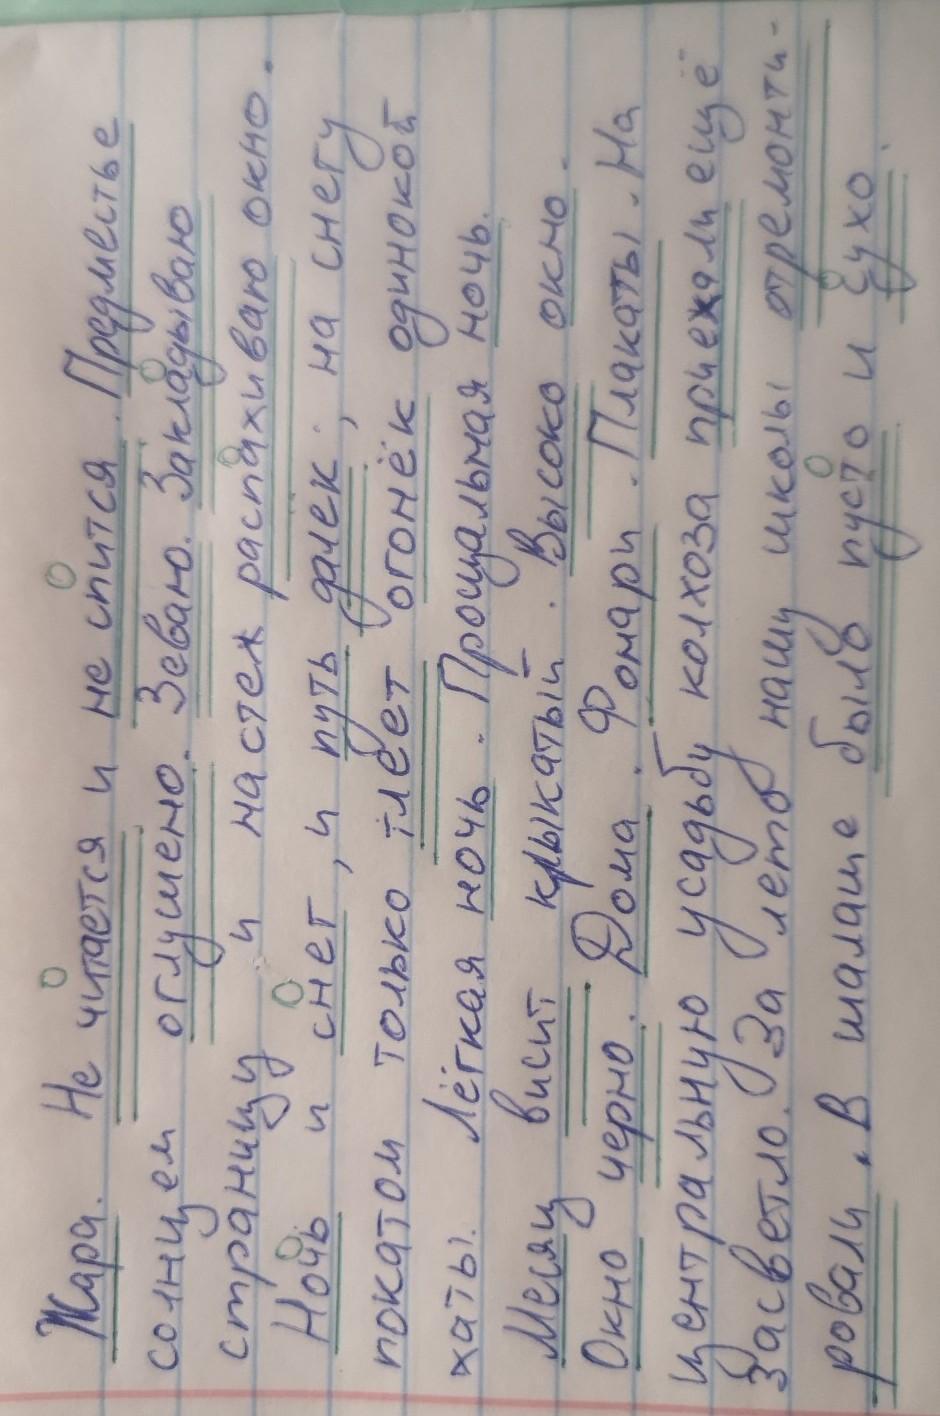 Жара. Не читается и не спится. Предместье
солнцем оглушено. Зеваю. Закладываю
страницу и настеж распахиваю окно.
Ночь и снег, и путь далек; на снегу
покатом только тлеет огонёк одинокой
хаты. Лёгкая ночь. Прощальная ночь.
Месяц висит крыкатый. Высоко окно.
Окно черно. Дома. Фонари. Плакаты. На
центральную усадьбу колхоза приежали ещё
Засветло. За лето нашу школы отремонти-
ровали. В шалаше было пусто и сухо.